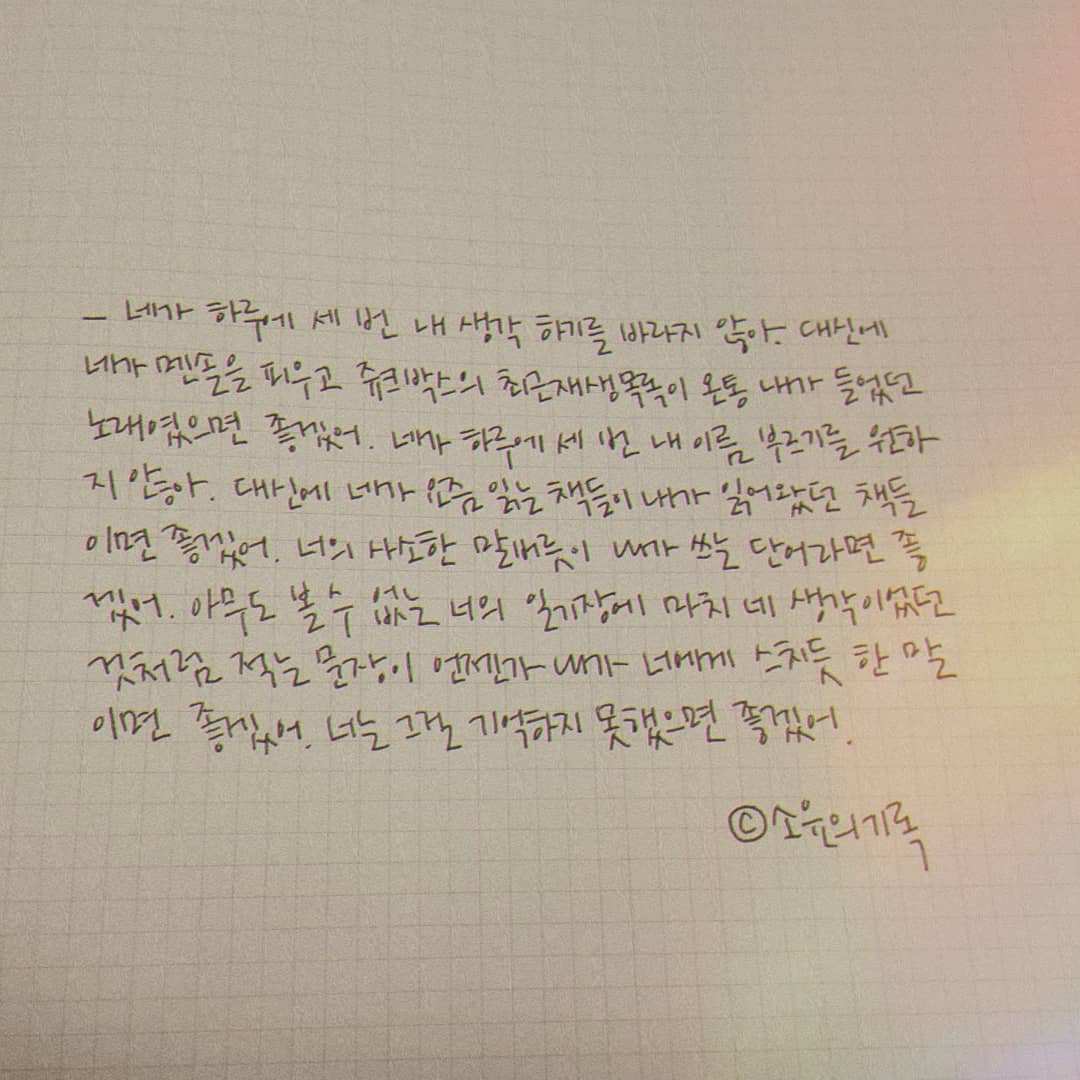 - 네가 하루에 세 번 내 생각 하기를 바라지 않아. 대신에
네가 멘솔을 피우고 쥬크박스의 최근재생목록이 온통 내가 들었던
노래였으면 좋겠어. 네가 하루에 세 번 내 이름 부르기를 원하
지 않아. 대신에 네가 요즘 읽는 책들이 내가 읽어왔던 책들
이면 좋겠어. 너의 사소한 말버릇이 내가 쓰는 단어라면 좋
겠어. 아무도 볼 수 없는 너의 일기장에 마치 네 생각이었던
것처럼 적는 문장이 언젠가 내가 너에게 스치듯 한 말
이면 좋겠어. 너는 그걸 기억하지 못했으면 좋겠어.
©소윤의기록